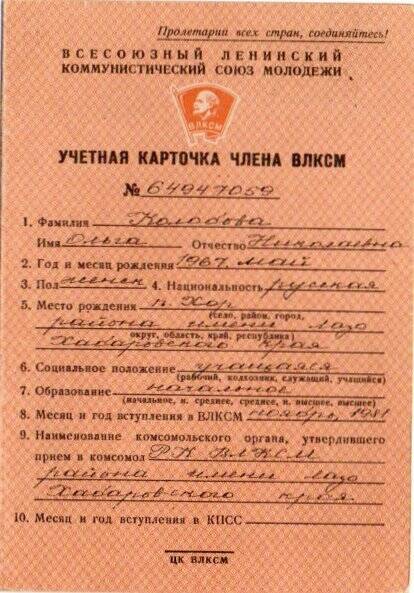 Пролетарии всех стран, соединяйтесь!
ВСЕСОЮЗНЫЙ ЛЕНИНСКИЙ
КОММУНИСТИЧЕСКИЙ СОЮЗ МОЛОДЕЖИ
ВЛКСМ
УЧЕТНАЯ КАРТОЧКА ЧЛЕНА ВЛКСМ
№ 64947059
1. Фамилия Колобова
Имя Ольга Отчество Николаевна
2. Год и месяц рождения 1967, май
3. Пол женск 4. Национальность русская
5. Место рождения п. Хор
(село, район, город,
района имени Лазо
округ, область, край, республика)
Хабаровского края
6. Социальное положение учащаяся
(рабочий, колхозник, служащий, учащийся)
7. Образование начальное
(начальное, н. среднее, среднее, н. высшее, высшее)
8. Месяц и год вступления в ВЛКСМ ноябрь, 1981
9. Наименование комсомольского органа, утвердившего
прием в комсомол РК ВЛКСМ
района имени Лазо
Хабаровского края
10. Месяц и год вступления в КПСС
ЦК ВЛКСМ